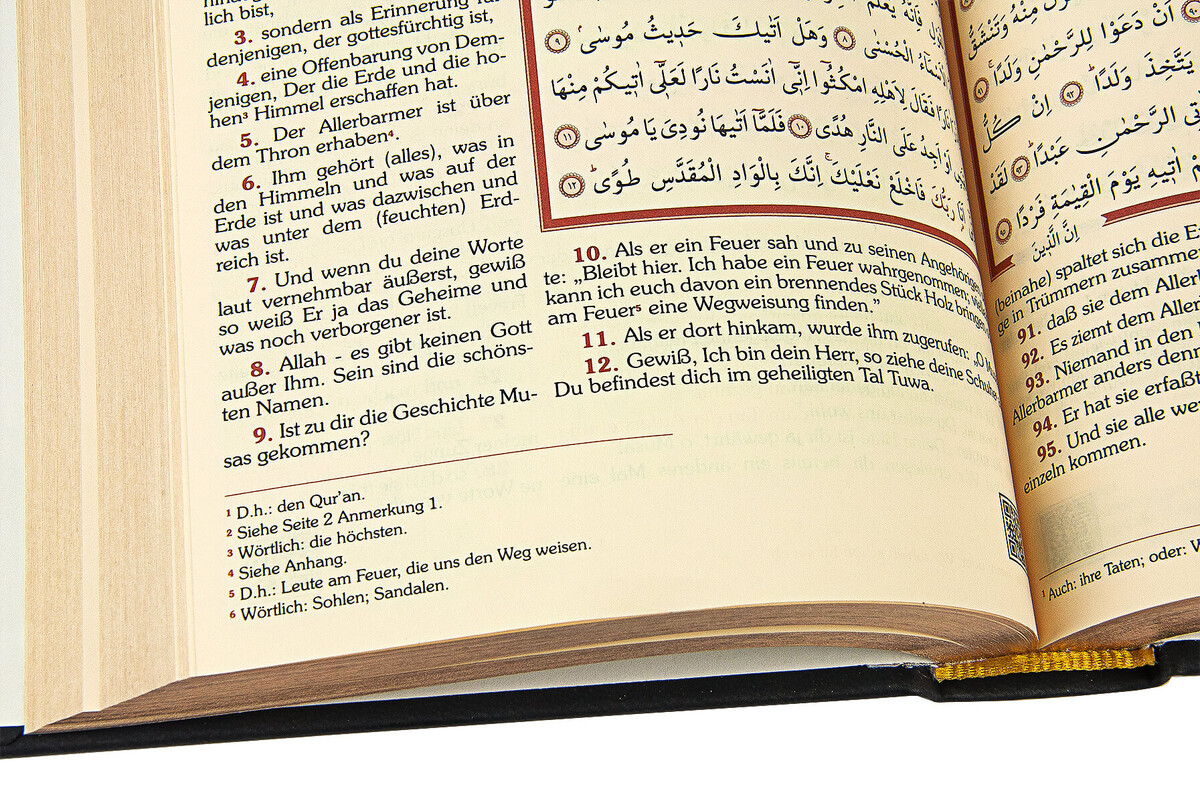 lich bist,
3. sondern als Erinnerung für
denjenigen, der gottesfürchtig ist,
4. eine Offenbarung von Dem-
jenigen, Der die Erde und die ho-
hen³ Himmel erschaffen hat.
5. Der Allerbarmer ist über
dem Thron erhaben⁴.
6. Ihm gehört (alles), was in
den Himmeln und was auf der
Erde ist und was dazwischen und
was unter dem (feuchten) Erd-
reich ist.
7. Und wenn du deine Worte
laut vernehmbar äußerst, gewiß
so weiß Er ja das Geheime und
was noch verborgener ist.
8. Allah - es gibt keinen Gott
außer Ihm. Sein sind die schöns-
ten Namen.
9. Ist zu dir die Geschichte Mu-
sas gekommen?
فَاِنَّهُ يَعْلَمُ
الْاَسْمَٓاءُ الْحُسْنٰى ٨ وَهَلْ اَتٰيكَ حَد۪يثُ مُوسٰىۢ ٩
نَارًا فَقَالَ لِاَهْلِهِ امْكُثُٓوا اِنّ۪ٓي اٰنَسْتُ نَارًا لَعَلّ۪ٓي اٰت۪يكُمْ مِنْهَا
اَوْ اَجِدُ عَلَى النَّارِ هُدًى ١٠ فَلَمَّٓا اَتٰيهَا نُودِيَ يَا مُوسٰى ١١
اَنَا۬ رَبُّكَ فَاخْلَعْ نَعْلَيْكَۚ اِنَّكَ بِالْوَادِ الْمُقَدَّسِ طُوًىۜ ١٢
10. Als er ein Feuer sah und zu seinen Angehörigen
te: „Bleibt hier. Ich habe ein Feuer wahrgenommen;
kann ich euch davon ein brennendes Stück Holz bringen
am Feuer⁵ eine Wegweisung finden.”
11. Als er dort hinkam, wurde ihm zugerufen: „O
12. Gewiß, Ich bin dein Herr, so ziehe deine Schuhe
Du befindest dich im geheiligten Tal Tuwa.
¹ D.h.: den Qur’an.
² Siehe Seite 2 Anmerkung 1.
³ Wörtlich: die höchsten.
⁴ Siehe Anhang.
⁵ D.h.: Leute am Feuer, die uns den Weg weisen.
⁶ Wörtlich: Sohlen; Sandalen.
مِنْهُ وَتَنْشَقُّ
اَنْ دَعَوْا لِلرَّحْمٰنِ وَلَدًاۚ ٩١
يَتَّخِذَ وَلَدًاۜ ٩٢ اِنْ كُلُّ
الرَّحْمٰنِ عَبْدًاۜ ٩٣ لَقَدْ
اٰت۪يهِ يَوْمَ الْقِيٰمَةِ فَرْدًا ٩٥
اِنَّ الَّذ۪ينَ
(beinahe) spaltet sich die
ge in Trümmern zusammen
91. daß sie dem
92. Es ziemt dem
93. Niemand in den
Allerbarmer anders denn
94. Er hat sie erfaßt
95. Und sie alle
einzeln kommen.
¹ Auch: ihre Taten; oder: